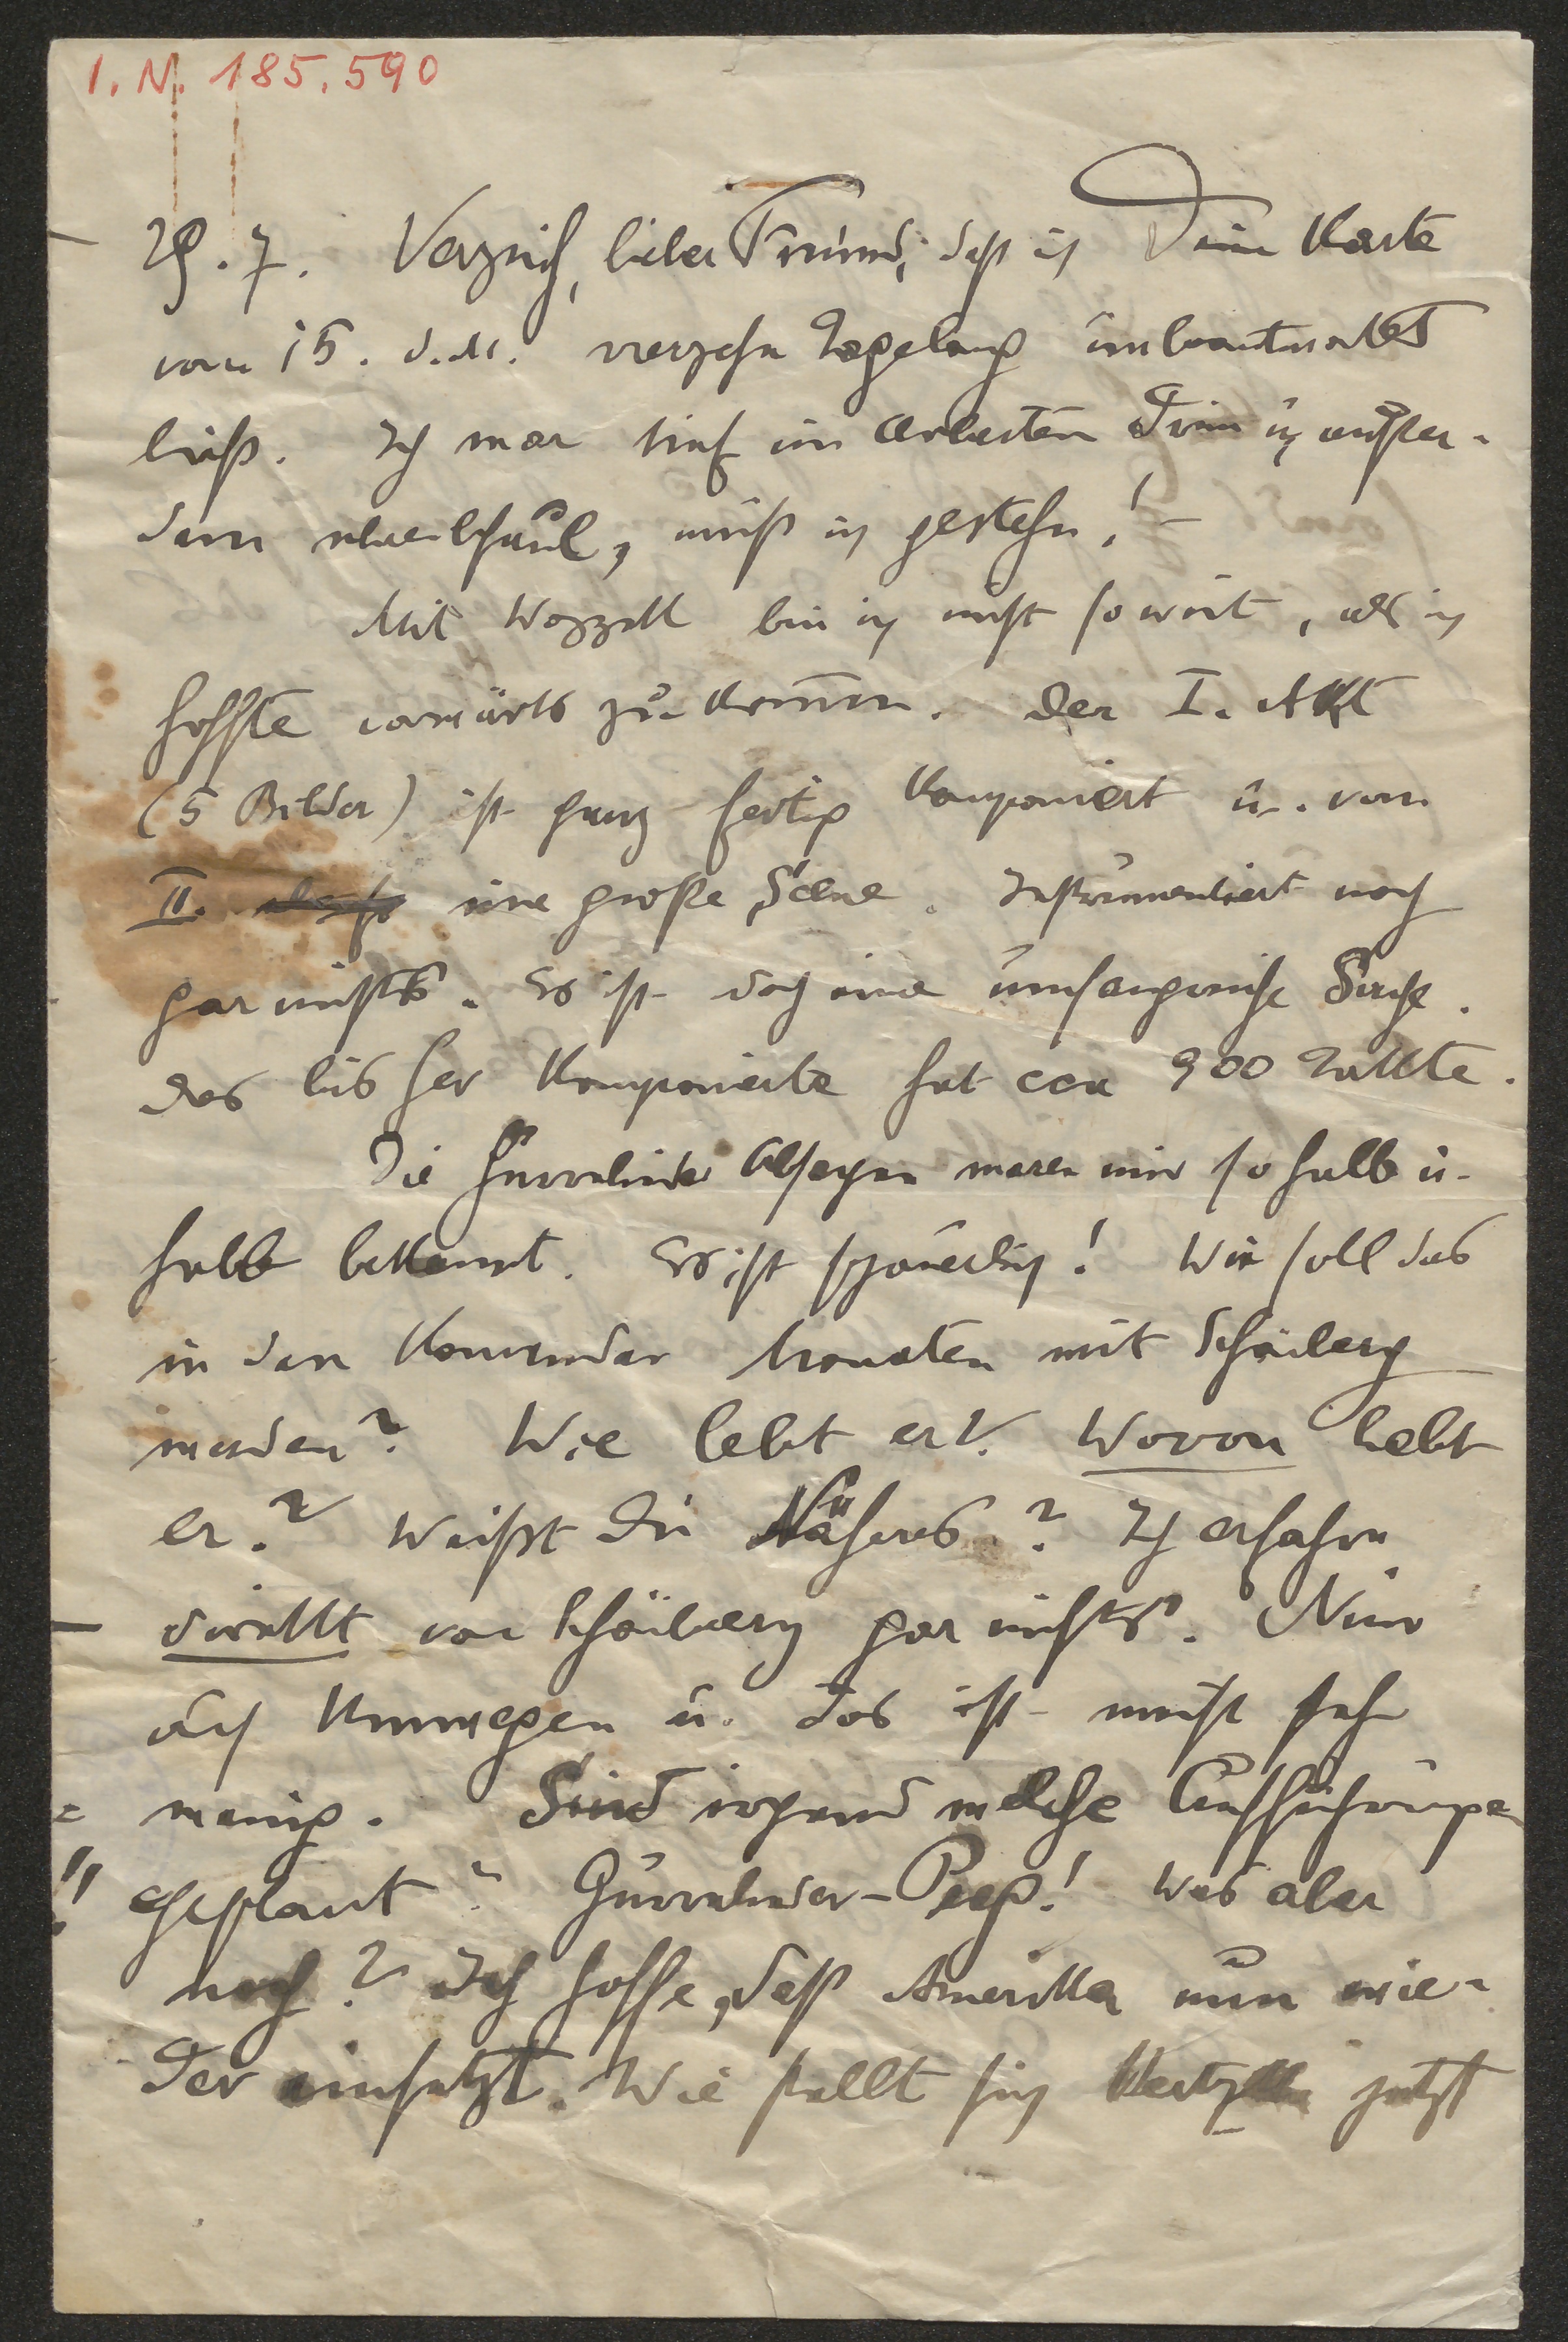 I. N. 185.590
29. 7. Verzeih, lieber Freund, daß ich Deine Karte
vom 15. d. M. vierzehn Tagelang unbeantwortet
ließ. Ich war tief im Arbeiten drin u. außer-
dem schreibfaul, muß ich gestehn! –
Mit Wozzek bin ich nicht so weit, als ich
hoffte vorwärts zu kommen. Der I. Akt
(5 Bilder) ist ganz fertig komponiert u. vom
II. eine große Scene. Instrumentiert noch
gar nichts. Es ist doch eine umfangreiche Sache.
Das bisher Komponierte hat cca 900 Takte.
Die Gurrelieder Absagen waren mir so halb u.
halb bekannt. Es ist schauerlich! Wie soll das
in den kommenden Monaten mit Schönberg
werden? Wie lebt er? Wovon lebt
er? Weißt Du Näheres? Ich erfahre
direkt von Schönberg gar nichts. Nur
auf Umwegen u. das ist meist sehr
wenig. Sind irgend welche Aufführungen
geplant? Gurrelieder-Preß! Was aber
noch? Ich hoffe, daß Amerika nun wie-
der einsetzt. Wie stellt sich jetzt